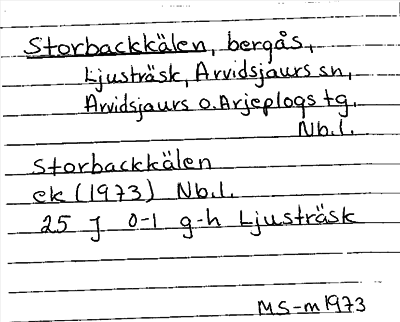 Storbackkälen, bergås,
Ljusträsk, Arvidsjaurs sn,
Arvidsjaurs o. Arjeplogs tg.
Nb.l.
Storbackkälen
ek (1973) Nb.l.
25 J 0-1 g-h Ljusträsk
MS-m 1973